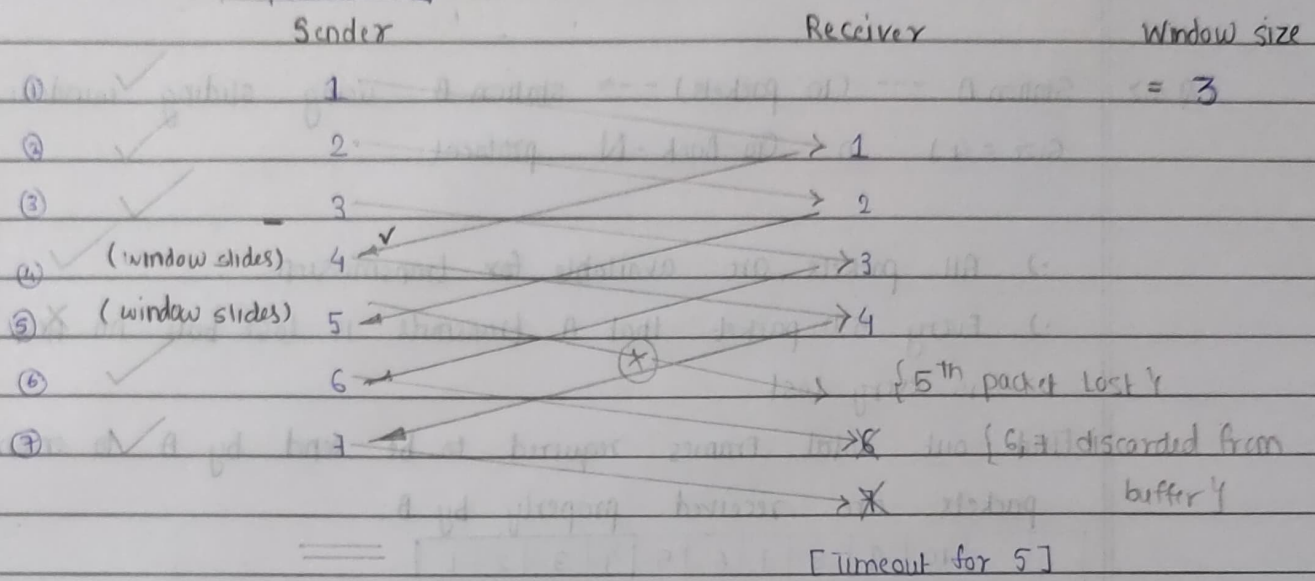 Sender Receiver Window size
① 1 = 3
② 2 1
③ 3 2
④ (window slides) 4 3
⑤ (window slides) 5 4
⑥ 6 {5th packet lost}
⑦ 7 6 {6,7 discarded from
7 buffer}
[Timeout for 5]